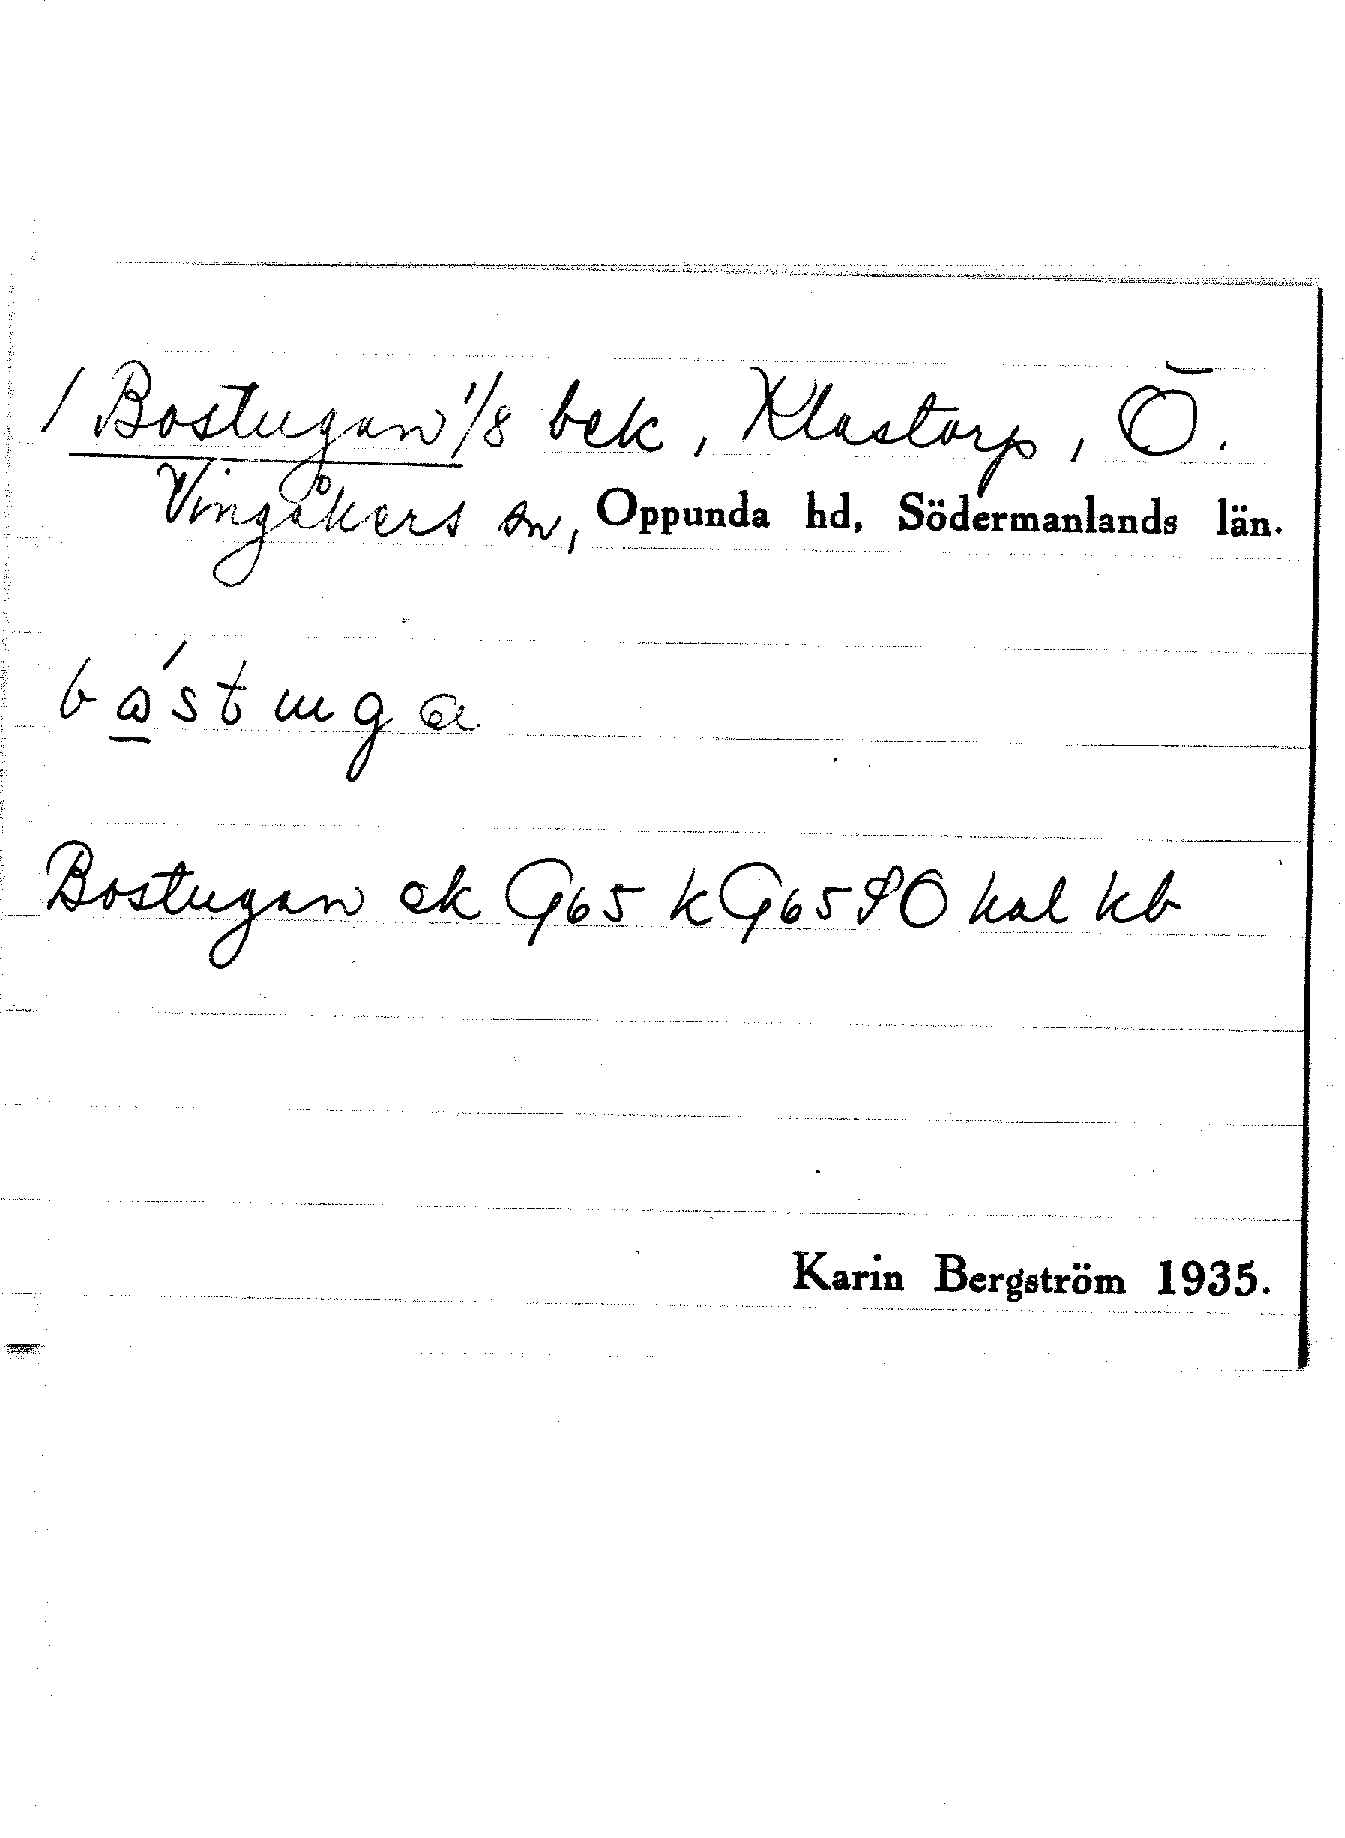 / Bostugan 1/8 bek, Klastorp, Ö.
Vingåkers sn, Oppunda hd, Södermanlands län.
Bostugan ek G65 kG65 SO kal kb
Karin Bergström 1935.